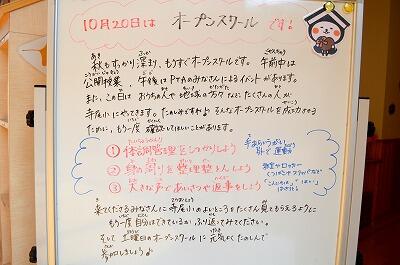 10月20日は オープンスクール です!
秋もすっかり深まり、もうすぐオープンスクールです。午前中は
公開授業、午後はPTAのみなさんによるイベントがあります。
また、この日は おうちの人や 地域の方々など、たくさんの人が
寺尾小にやってきます。たのしみですね♪ そんなオープンスクールを成功させる
ために、もう一度 確認してほしいことがあります。
① 体調管理をしっかりしよう
手あらいうがい
外で運動
② 身の周りを整理整とんしよう
教室やロッカー
くつばこやスリッパなど
③ 大きな声であいさつや返事をしよう
"こんにちは" "はい"
来てくださるみなさんに寺尾小のよいところをたくさん見てもらえるように
もう一度 自分はできているか、ふり返ってみてください。
そして 土曜日のオープンスクールに 元気よくたのしんで
参加しましょう♪